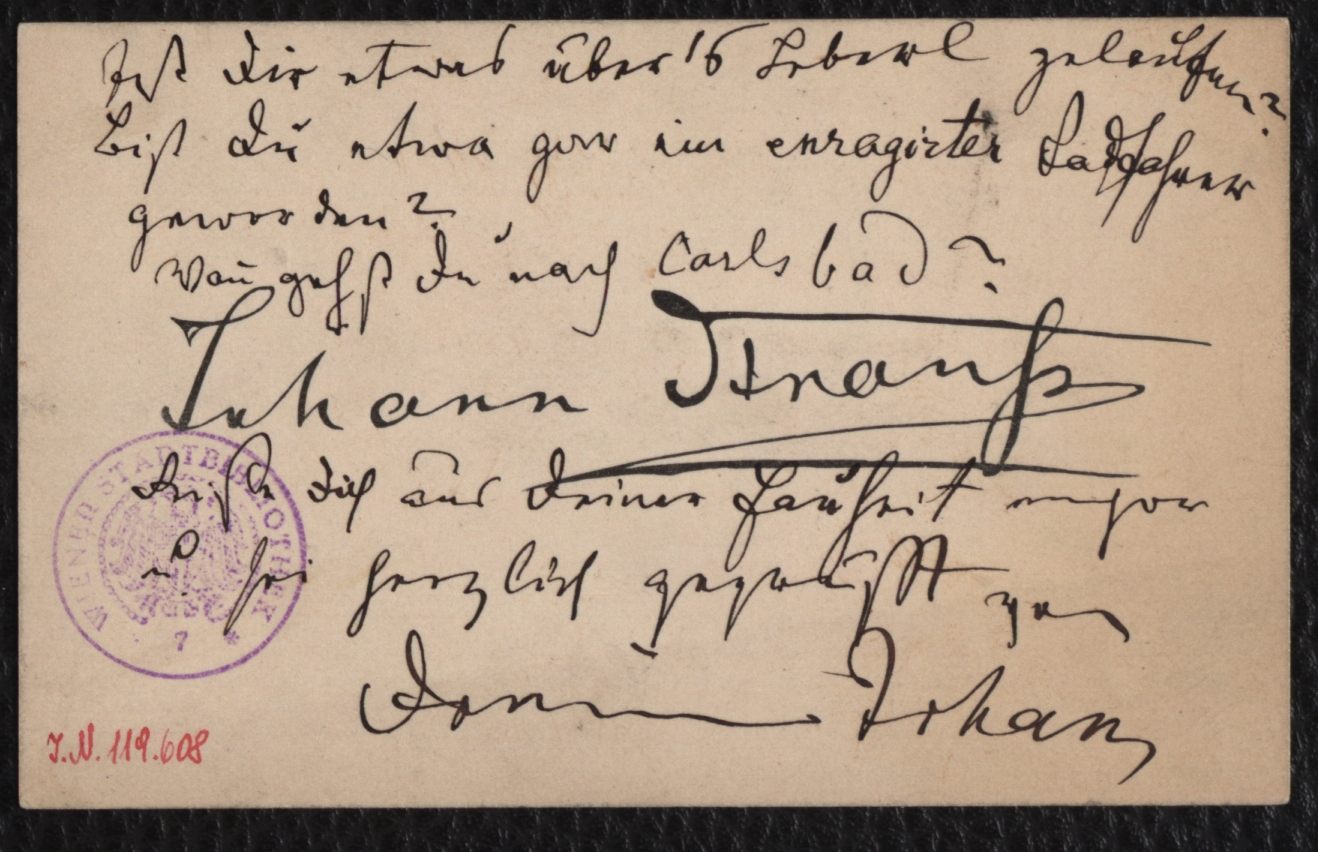 Ist Dir etwas über's Leberl gelaufen?
Bist Du etwa gar ein enragirter Radfahrer
geworden?
Wan gehst Du nach Carlsbad?
Johann Strauss
Dich aus Deiner Faulheit empor
u sei herzlich gegrüßt von
Dein Johann
WIENER STADTBIBLIOTHEK
7 *
I.N. 119.608